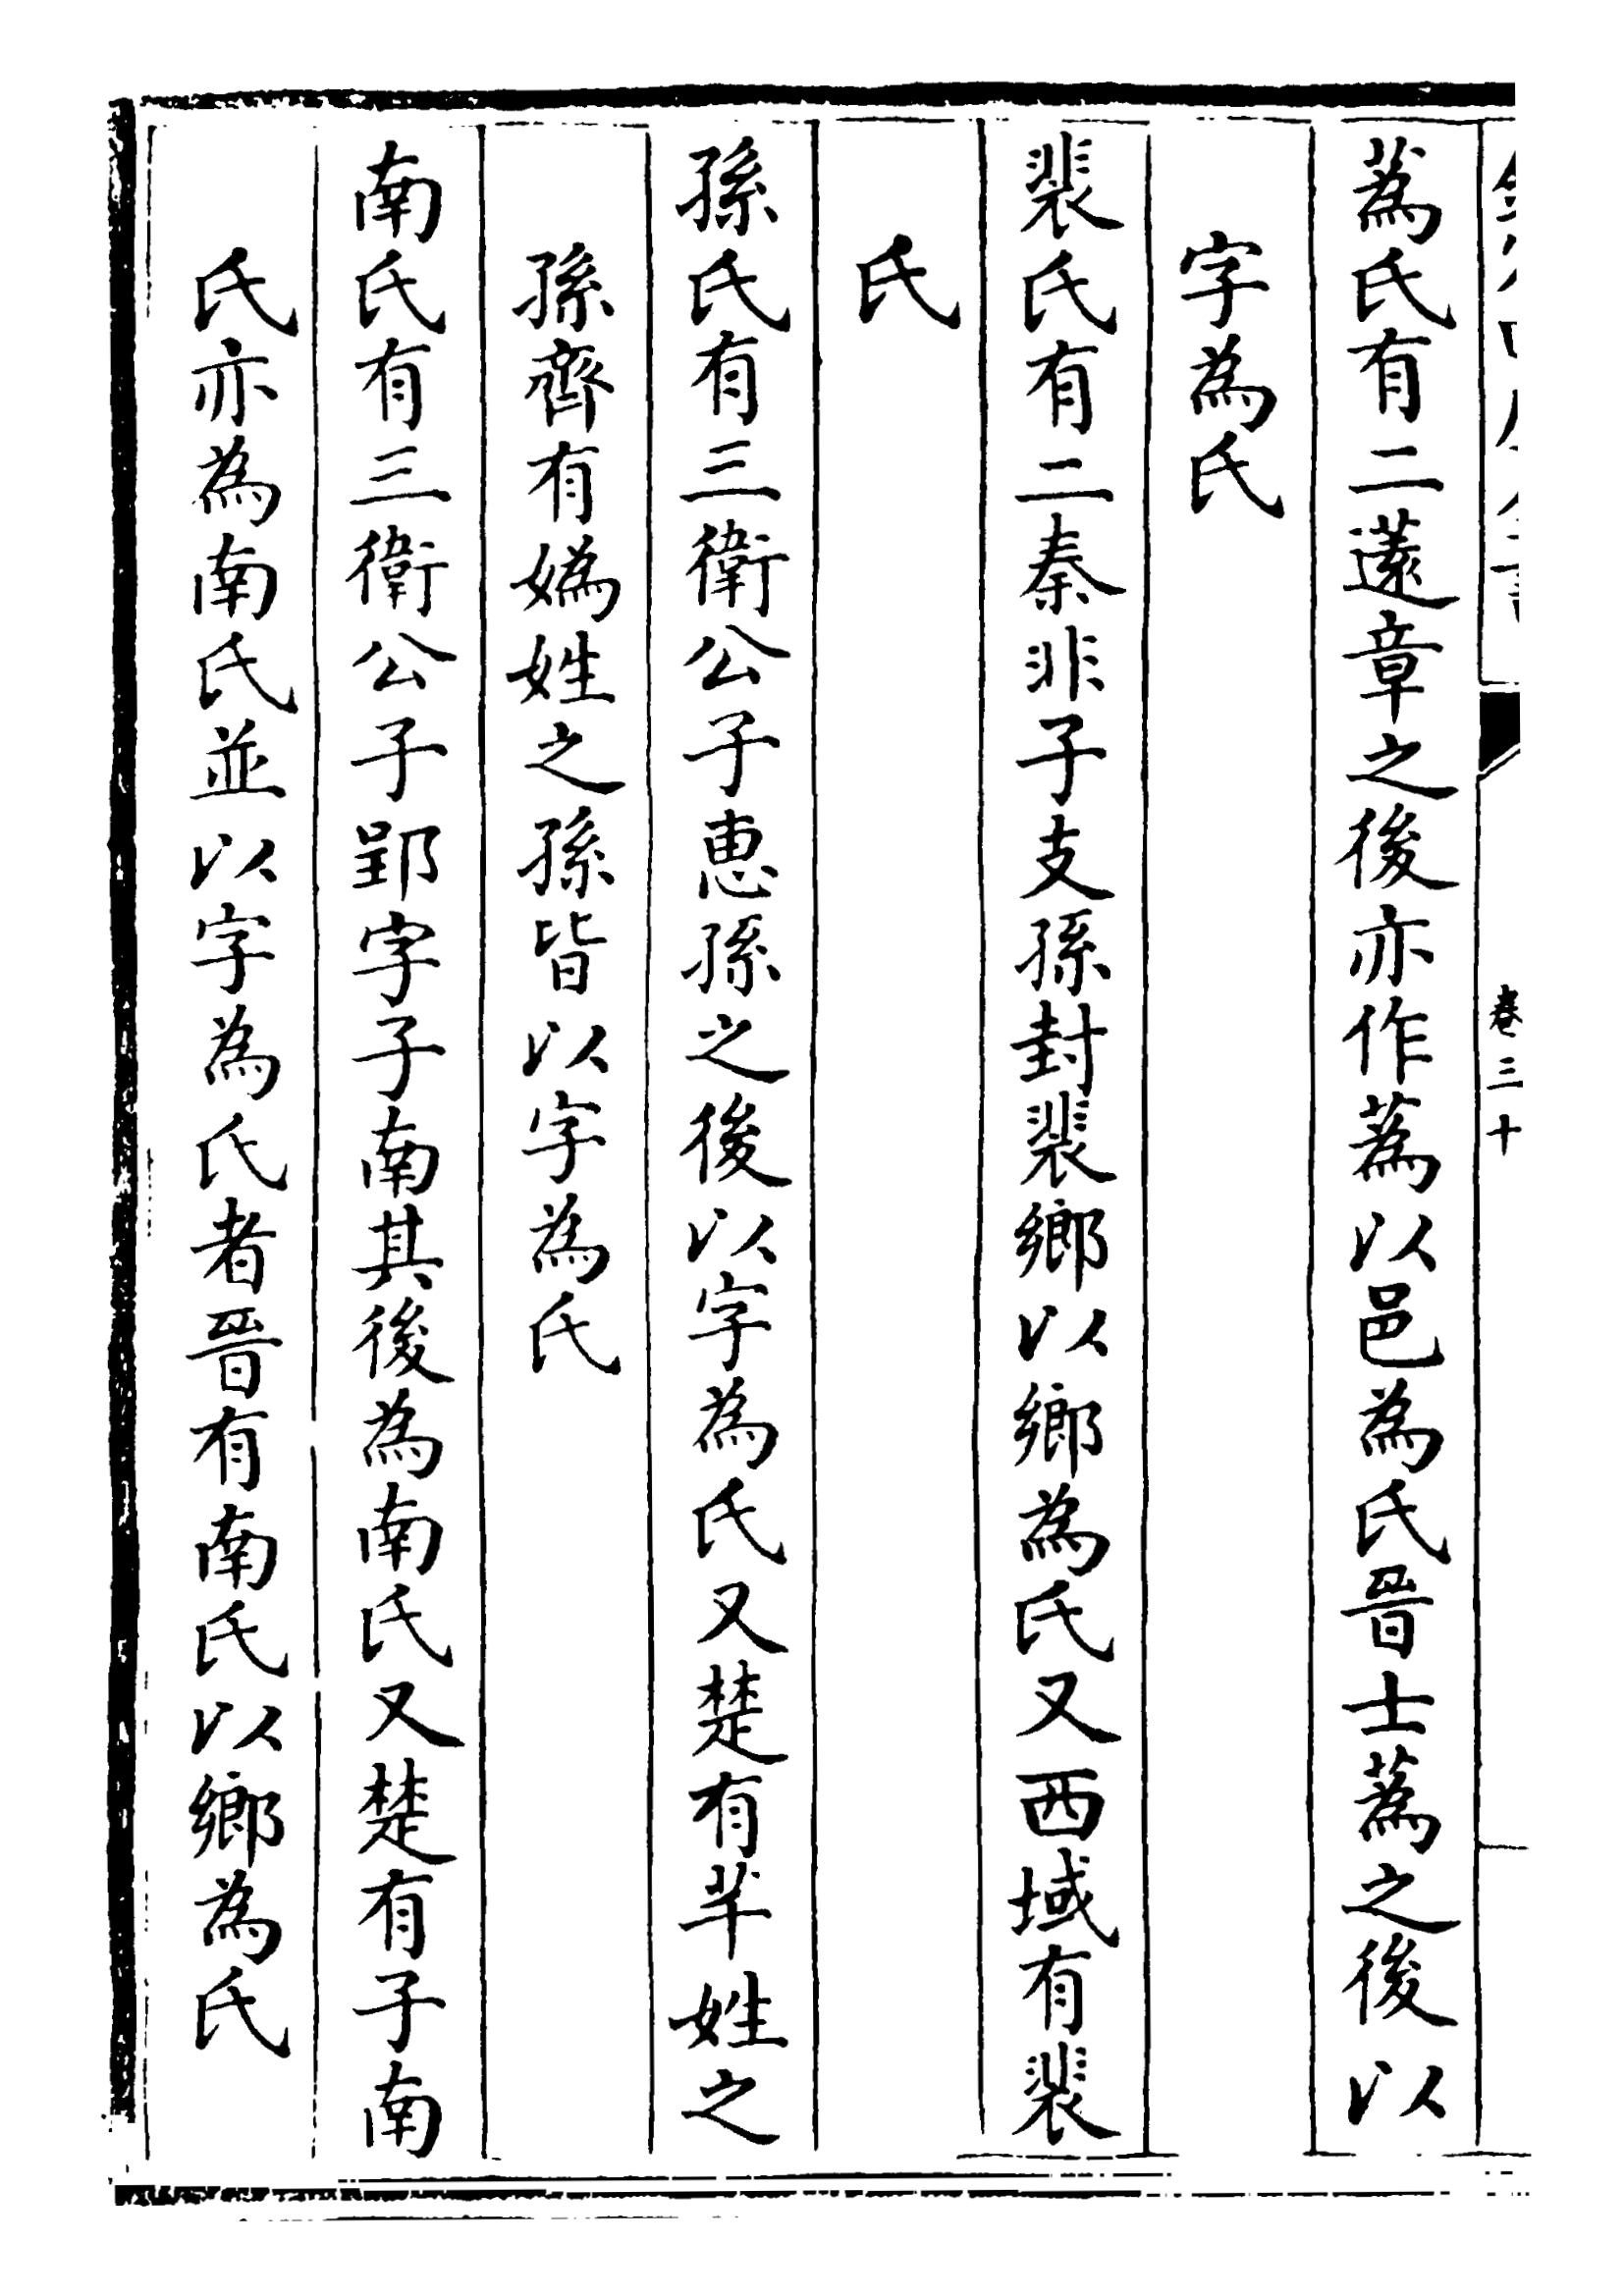 卷三十
蒍氏有二薳章之後亦作蒍以邑為氏晉士蒍之後以
字為氏
裴氏有二秦非子支孫封裴鄉以鄉為氏又西域有裴
氏
孫氏有三衛公子惠孫之後以字為氏又楚有芈姓之
孫齊有媯姓之孫皆以字為氏
南氏有三衛公子郢字子南其後為南氏又楚有子南
氏亦為南氏並以字為氏者晉有南氏以鄉為氏